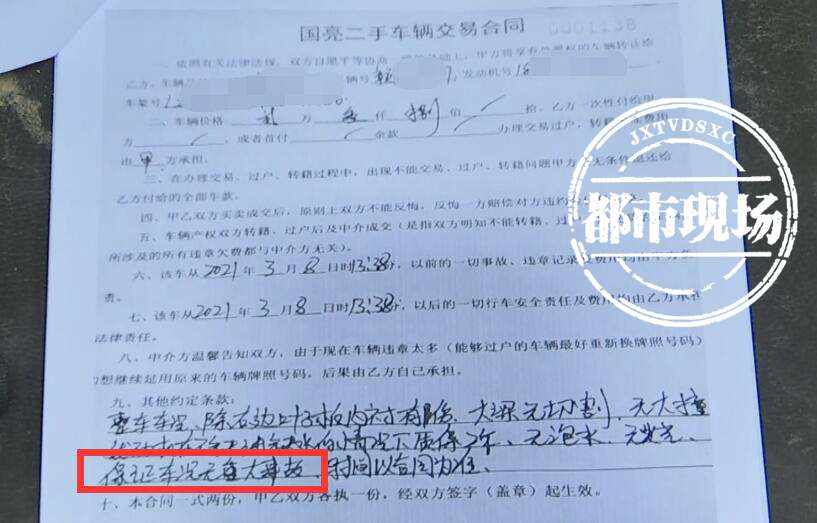 国亮二手车辆交易合同
0001138
一、依照有关法律法规，双方自愿平等协商，甲方将享有处置权的车辆转让给
乙方。车辆 辆号 发动机号
车架号
二、车辆价格 万 仟 捌 佰 拾，乙方一次性付给甲
方 ，或者首付 余款 办理交易过户，转籍 费用
由 甲 方承担。
三、在办理交易、过户、转籍过程中，出现不能交易、过户、转籍问题甲方 无条件退还给
乙方付给的全部车款。
四、甲乙双方买卖成交后，原则上双方不能反悔，反悔一方赔偿对方违约
五、车辆产权双方转籍、过户后及中介成交（是指双方明知不能转籍、过
所涉及的所有违章欠费都与中介方无关）。
六、该车从2021年3月8日时13:38分，以前的一切事故、违章记录及费用均由甲方负
责。
七、该车从2021年3月8日时13:38分，以后的一切行车安全责任及费用均由乙方承担
法律责任。
八、中介方温馨告知双方，由于现在车辆违章太多（能够过户的车辆最好重新换牌照号码）
的想继续延用原来的车辆牌照号码，后果由乙方自己承担。
九、其他约定条款：
整车车况，除右边 内衬有 ，大梁无切割，无大撞
情况下质保2年、无泡水、无火烧、
保证车况无重大事故，时间以合同为准、
十、本合同一式两份，甲乙双方各执一份，经双方签字（盖章）起生效。
JXTVDSXC
都市现场